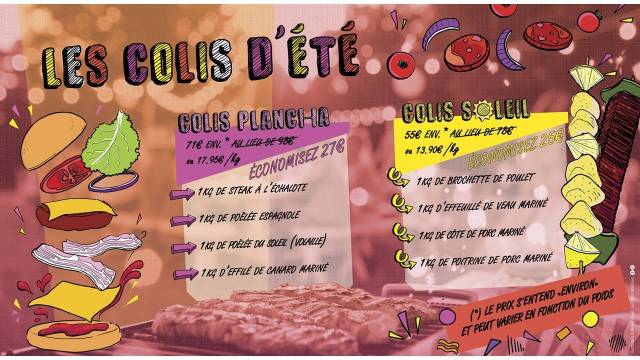 LES COLIS D'ÉTÉ
COLIS PLANCHA
71€ ENV. * AU LIEU DE 98€
ou 17.95€ /kg
ÉCONOMISEZ 27€
1 KG DE STEAK À L'ÉCHALOTE
1 KG DE POÊLÉE ESPAGNOLE
1 KG DE POÊLÉE DU SOLEIL (VOLAILLE)
1 KG D'EFFILÉ DE CANARD MARINÉ
COLIS SOLEIL
55€ ENV. * AU LIEU DE
ou 13,90€ /kg
ÉCONOMISEZ 25€
1 KG DE BROCHETTE DE POULET
1 KG D'EFFEUILLÉ DE VEAU MARINÉ
1 KG DE CÔTE DE PORC MARINÉ
1 KG DE POITRINE DE PORC MARINÉ
(*) LE PRIX S'ENTEND «ENVIRON»
ET PEUT VARIER EN FONCTION DU POIDS